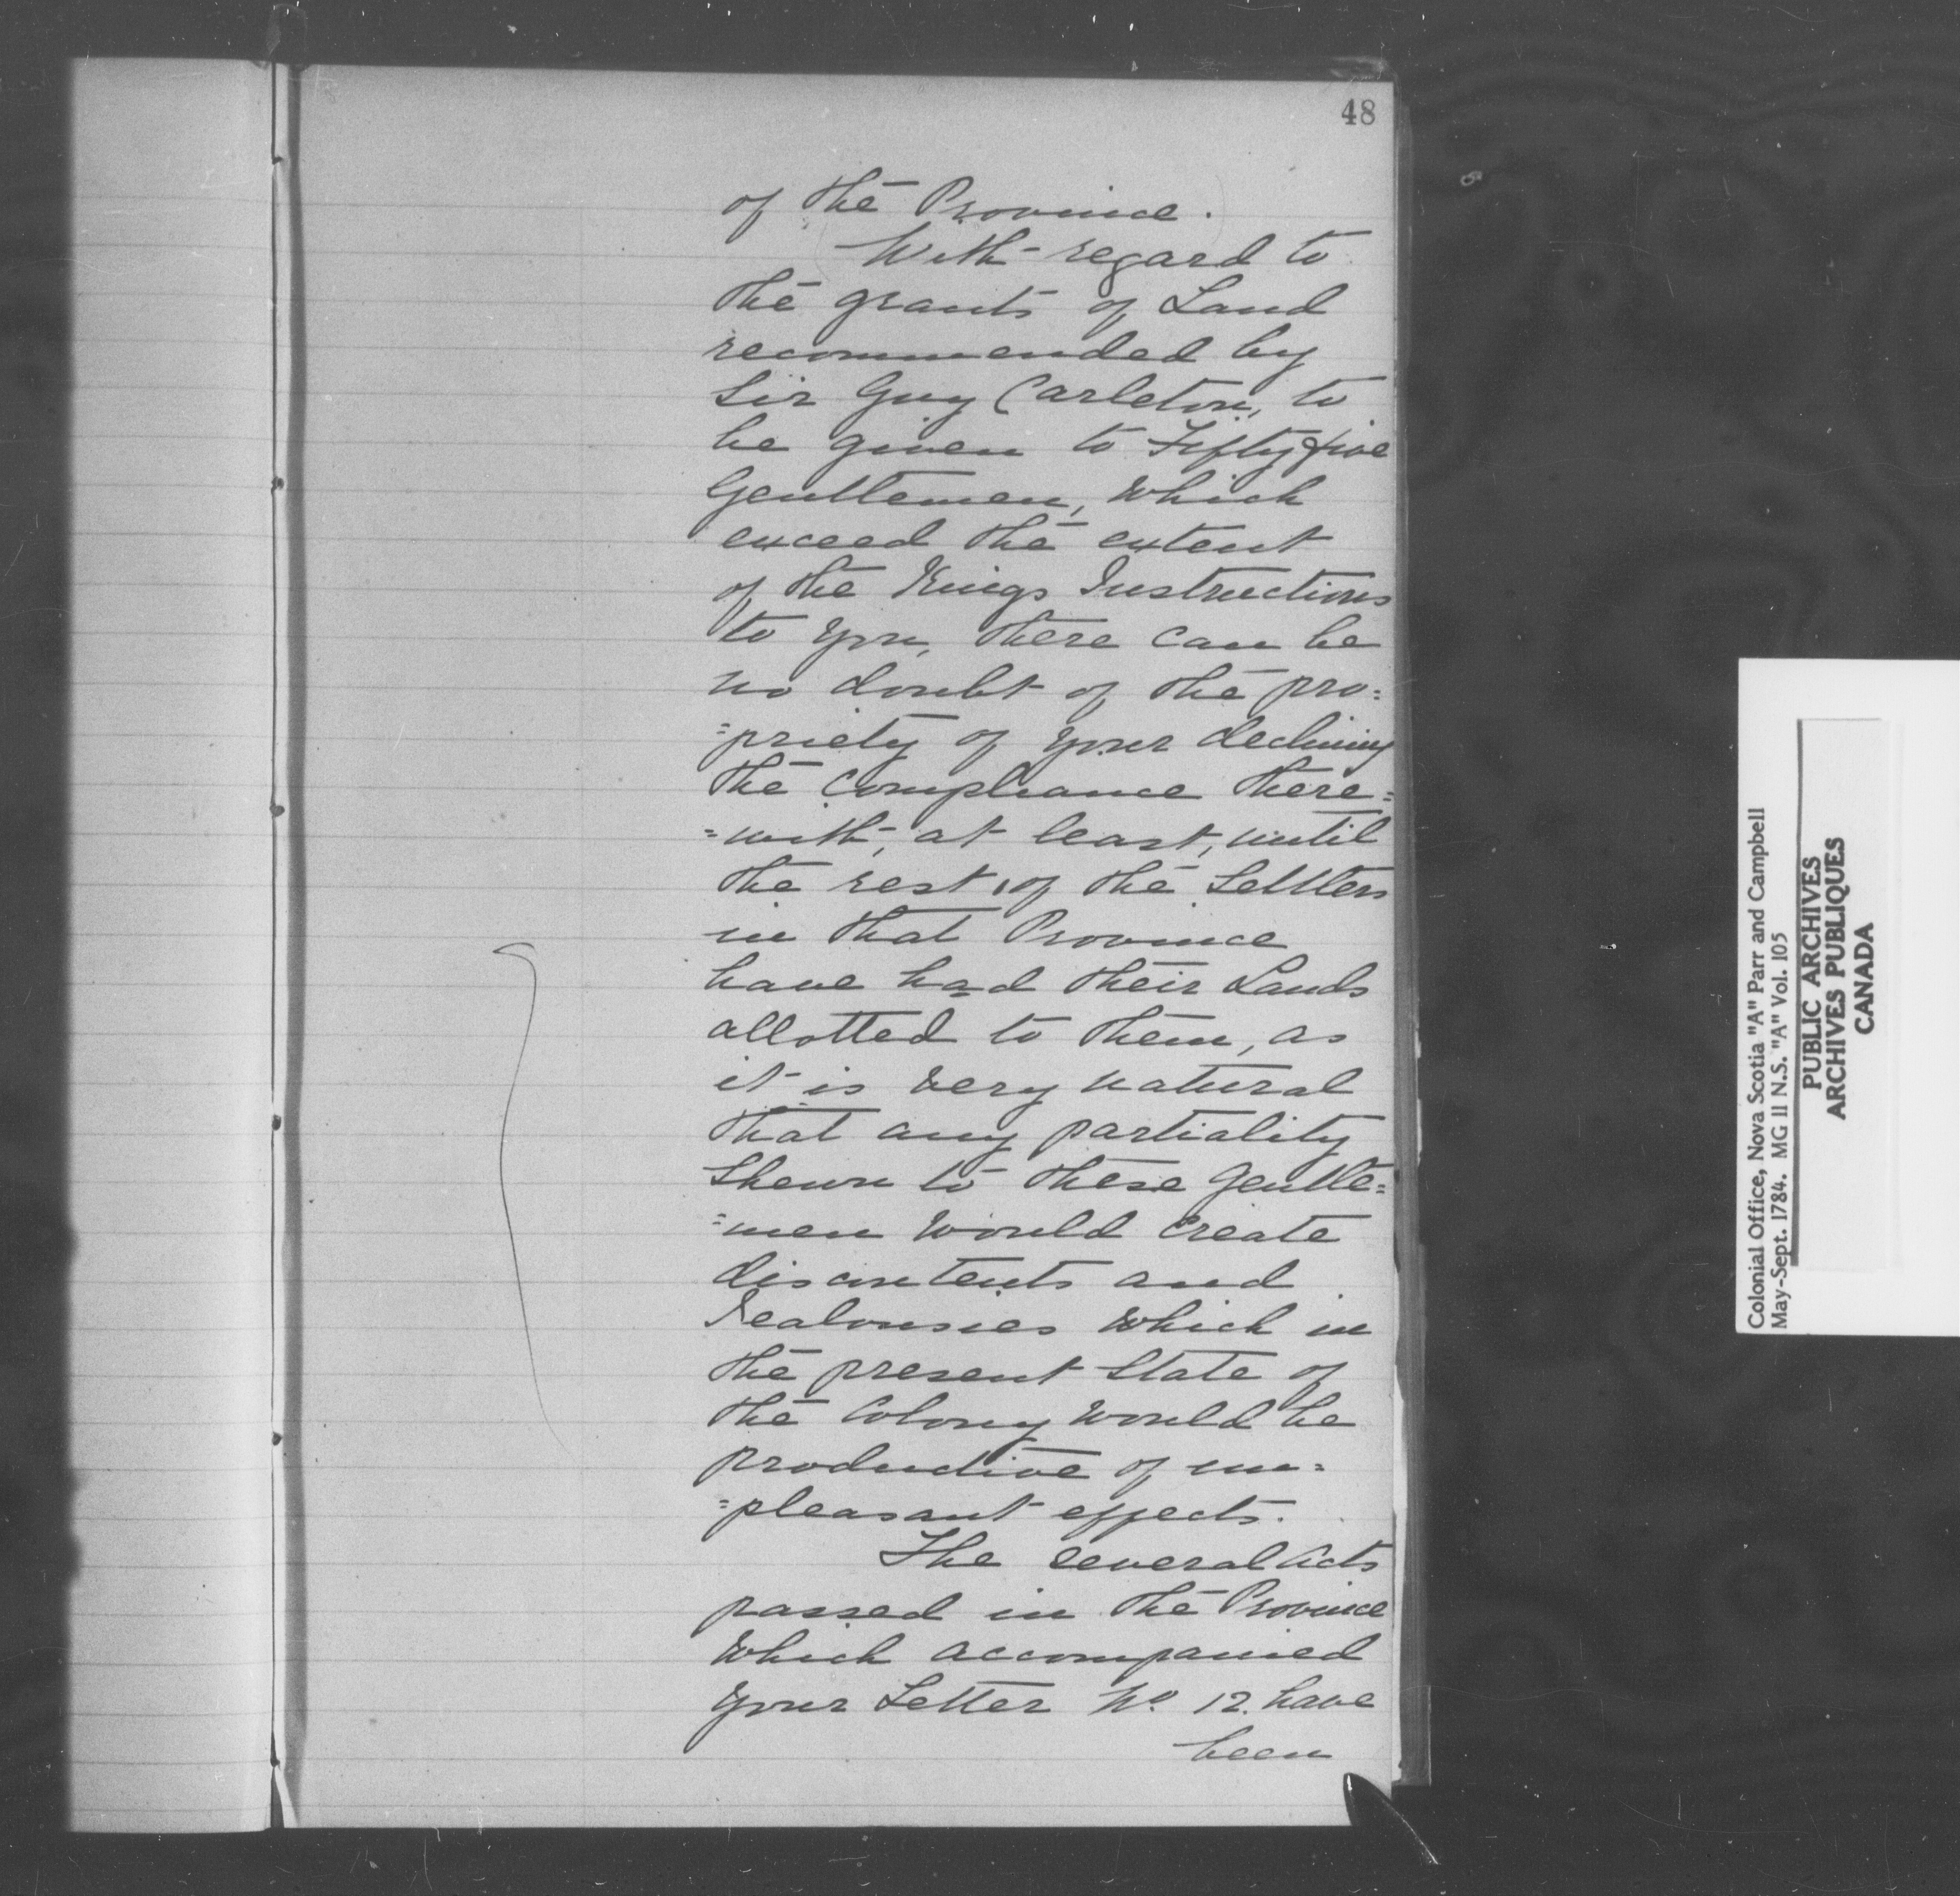 48
of the Province.
With regard to
the grants of Land
recommended by
Sir Guy Carleton, to
be given to Fifty five
Gentlemen, which
exceed the extent
of the Kings Instructions
to you, there can be
no doubt of the pro=
=priety of your declining
the compliance there=
=with, at least, until
the rest of the Settlers
in that Province
have had their Lands
allotted to them, as
it is very natural
that any partiality
shewn to these Gentle=
=men would create
discontents and
Jealousies which in
the present State of
the Colony would be
productive of un=
=pleasant effects.
The several Acts
passed in the Province
which accompanied
your Letter No. 12. have
been
Colonial Office, Nova Scotia "A" Parr and Campbell
May-Sept. 1784. MG 11 N.S. "A" Vol. 105
PUBLIC ARCHIVES
ARCHIVES PUBLIQUES
CANADA